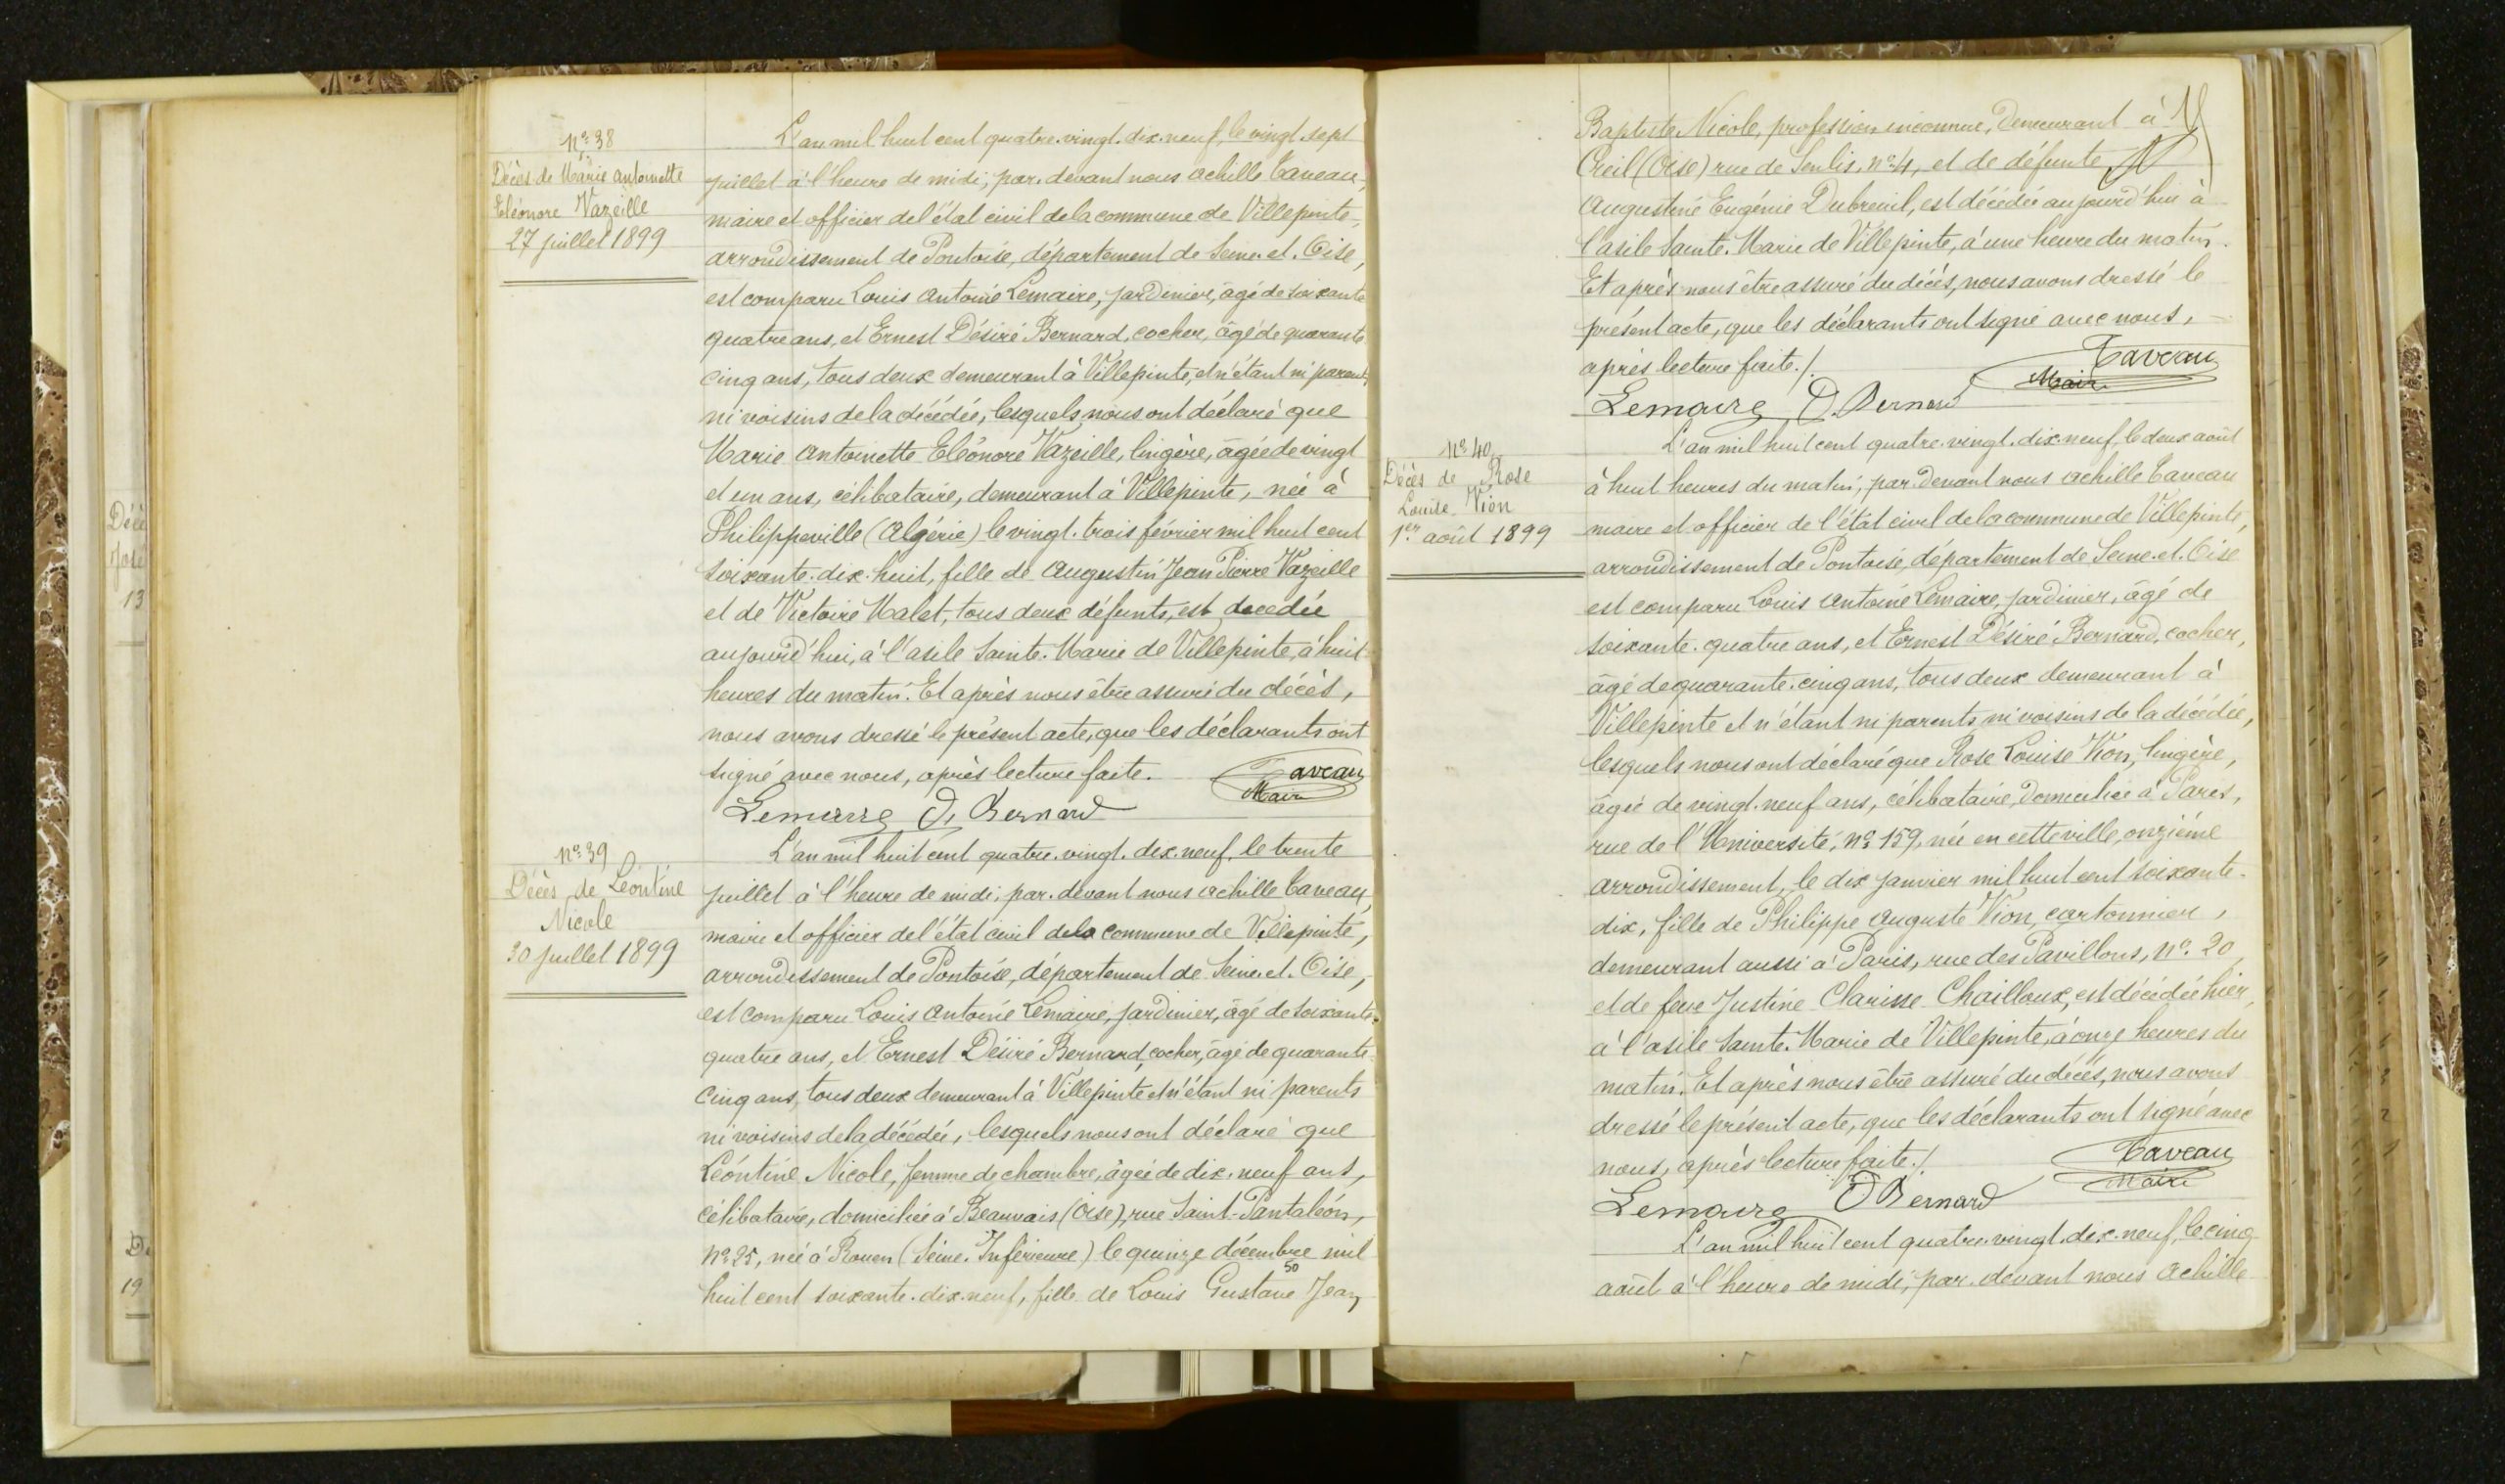 Décè
José
13
Dé
19
Nº 38
Décès de Marie Antoinette
Eléonore Vazeille
27 juillet 1899
L'an mil huit cent quatre-vingt-dix-neuf, le vingt-sept
juillet à l'heure de midi, par-devant nous Achille Taveau,
maire et officier de l'état civil de la commune de Villepinte,
arrondissement de Pontoise, département de Seine-et-Oise,
est comparu Louis Antoine Lemaire, jardinier, âgé de soixante
quatre ans, et Ernest Désiré Bernard, cocher, âgé de quarante
cinq ans, tous deux demeurant à Villepinte, et n'étant ni parents
ni voisins de la décédée, lesquels nous ont déclaré que
Marie Antoinette Eléonore Vazeille, lingère, âgée de vingt
et un ans, célibataire, demeurant à Villepinte, née à
Philippeville (Algérie) le vingt-trois février mil huit cent
soixante-dix-huit, fille de Augustin Jean Pierre Vazeille
et de Victoire Malet, tous deux défunts, est décédée
aujourd'hui, à l'asile Sainte-Marie de Villepinte, à huit
heures du matin. Et après nous être assuré du décès,
nous avons dressé le présent acte, que les déclarants ont
signé avec nous, après lecture faite.
Taveau
Maire
Lemaire D. Bernard
Nº 39
Décès de Léontine
Nicole
30 juillet 1899
L'an mil huit cent quatre-vingt-dix-neuf, le trente
juillet à l'heure de midi, par-devant nous Achille Taveau,
maire et officier de l'état civil de la commune de Villepinte,
arrondissement de Pontoise, département de Seine-et-Oise,
est comparu Louis Antoine Lemaire, jardinier, âgé de soixante-
quatre ans, et Ernest Désiré Bernard, cocher, âgé de quarante-
cinq ans, tous deux demeurant à Villepinte et n'étant ni parents
ni voisins de la décédée, lesquels nous ont déclaré que
Léontine Nicole, femme de chambre, âgée de dix-neuf ans,
célibataire, domiciliée à Beauvais (Oise), rue Saint-Pantaléon,
Nº 25, née à Rouen (Seine-Inférieure) le quinze décembre mil
huit cent soixante-dix-neuf, fille de Louis Gustave Jean
50
Baptiste Nicole, profession inconnue, demeurant à
Creil (Oise) rue de Senlis, nº 4, et de défunte
Augustine Eugénie Dubreuil, est décédée aujourd'hui à
l'asile Sainte-Marie de Villepinte, à une heure du matin.
Et après nous être assuré du décès, nous avons dressé le
présent acte, que les déclarants ont signé avec nous,
après lecture faite./.
Taveau
Maire
Lemaire D. Bernard
Nº 40
Décès de Rose
Louise Vion
1er août 1899
L'an mil huit cent quatre-vingt-dix-neuf, le deux août
à huit heures du matin, par-devant nous Achille Taveau
maire et officier de l'état civil de la commune de Villepinte,
arrondissement de Pontoise, département de Seine-et-Oise
est comparu Louis Antoine Lemaire, jardinier, âgé de
soixante-quatre ans, et Ernest Désiré Bernard, cocher,
âgé de quarante-cinq ans, tous deux demeurant à
Villepinte et n'étant ni parents ni voisins de la décédée,
lesquels nous ont déclaré que Rose Louise Vion, lingère,
âgée de vingt-neuf ans, célibataire, domiciliée à Paris,
rue de l'Université, Nº 159, née en cette ville, onzième
arrondissement, le dix janvier mil huit cent soixante-
dix, fille de Philippe Auguste Vion, cartonnier,
demeurant aussi à Paris, rue des Pavillons, Nº 20,
et de feue Justine Clarisse Chailloux, est décédée hier,
à l'asile Sainte-Marie de Villepinte, à onze heures du
matin. Et après nous être assuré du décès, nous avons
dressé le présent acte, que les déclarants ont signé avec
nous, après lecture faite./.
Taveau
Maire
Lemaire D Bernard
L'an mil huit cent quatre-vingt-dix-neuf, le cinq
août à l'heure de midi, par-devant nous Achille